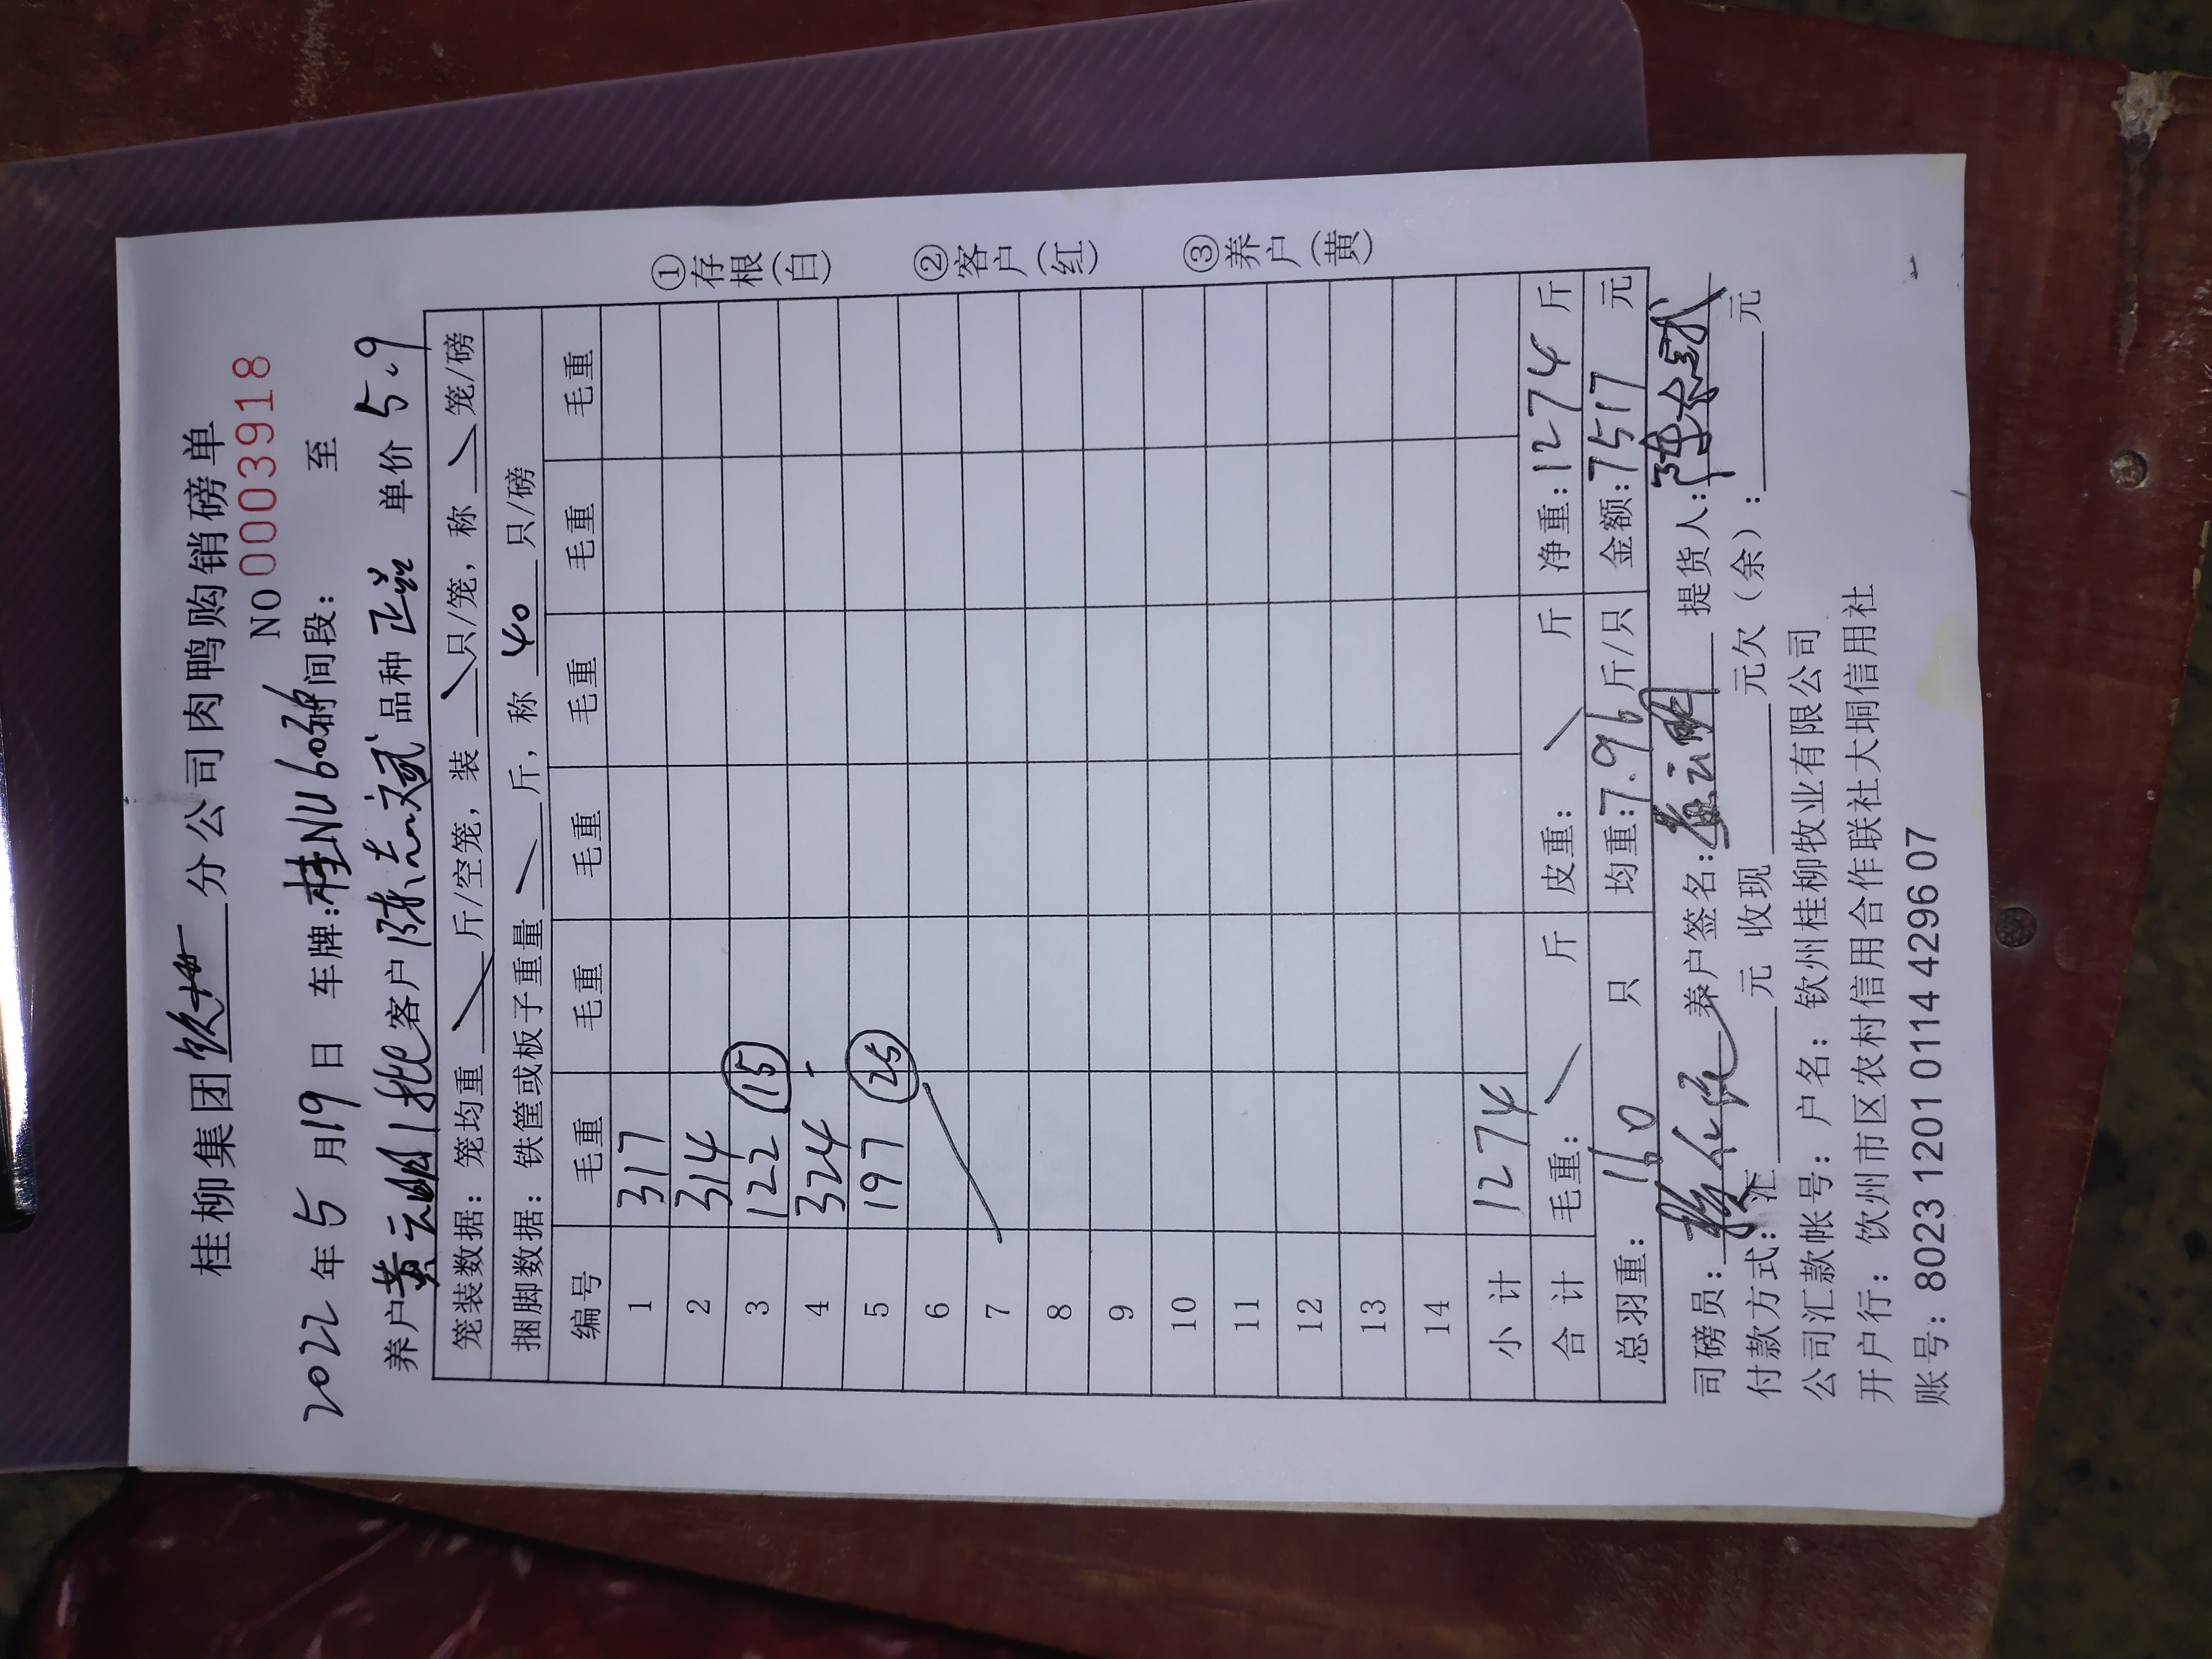 桂柳集团钦州分公司肉鸭购销磅单
NO 0003918
2022年5月19日 车牌:桂NU603 时间段: 至
养户黄云明1批客户陈志斌品种 单价5.9
笼装数据：笼均重 斤/空笼，装 只/笼，称 笼/磅
捆脚数据：铁筐或板子重量 斤，称 40 只/磅
编号 毛重 毛重 毛重 毛重 毛重 毛重
1 317
2 314
3 122 (15)
4 324
5 197 (25)
6
7
8
9
10
11
12
13
14
小计 1274
合计 毛重： 斤 皮重： 斤 净重：1274 斤
总羽重： 160 只 均重：7.96斤/只 金额：7517 元
司磅员： 养户签名：黄云明 提货人：陈志斌
付款方式：汇 元 收现 元欠（余）： 元
公司汇款帐号：户名：钦州桂柳牧业有限公司
开户行：钦州市区农村信用合作联社大垌信用社
账号：8023 1201 0114 4296 07
①存根(白)
②客户(红)
③养户(黄)